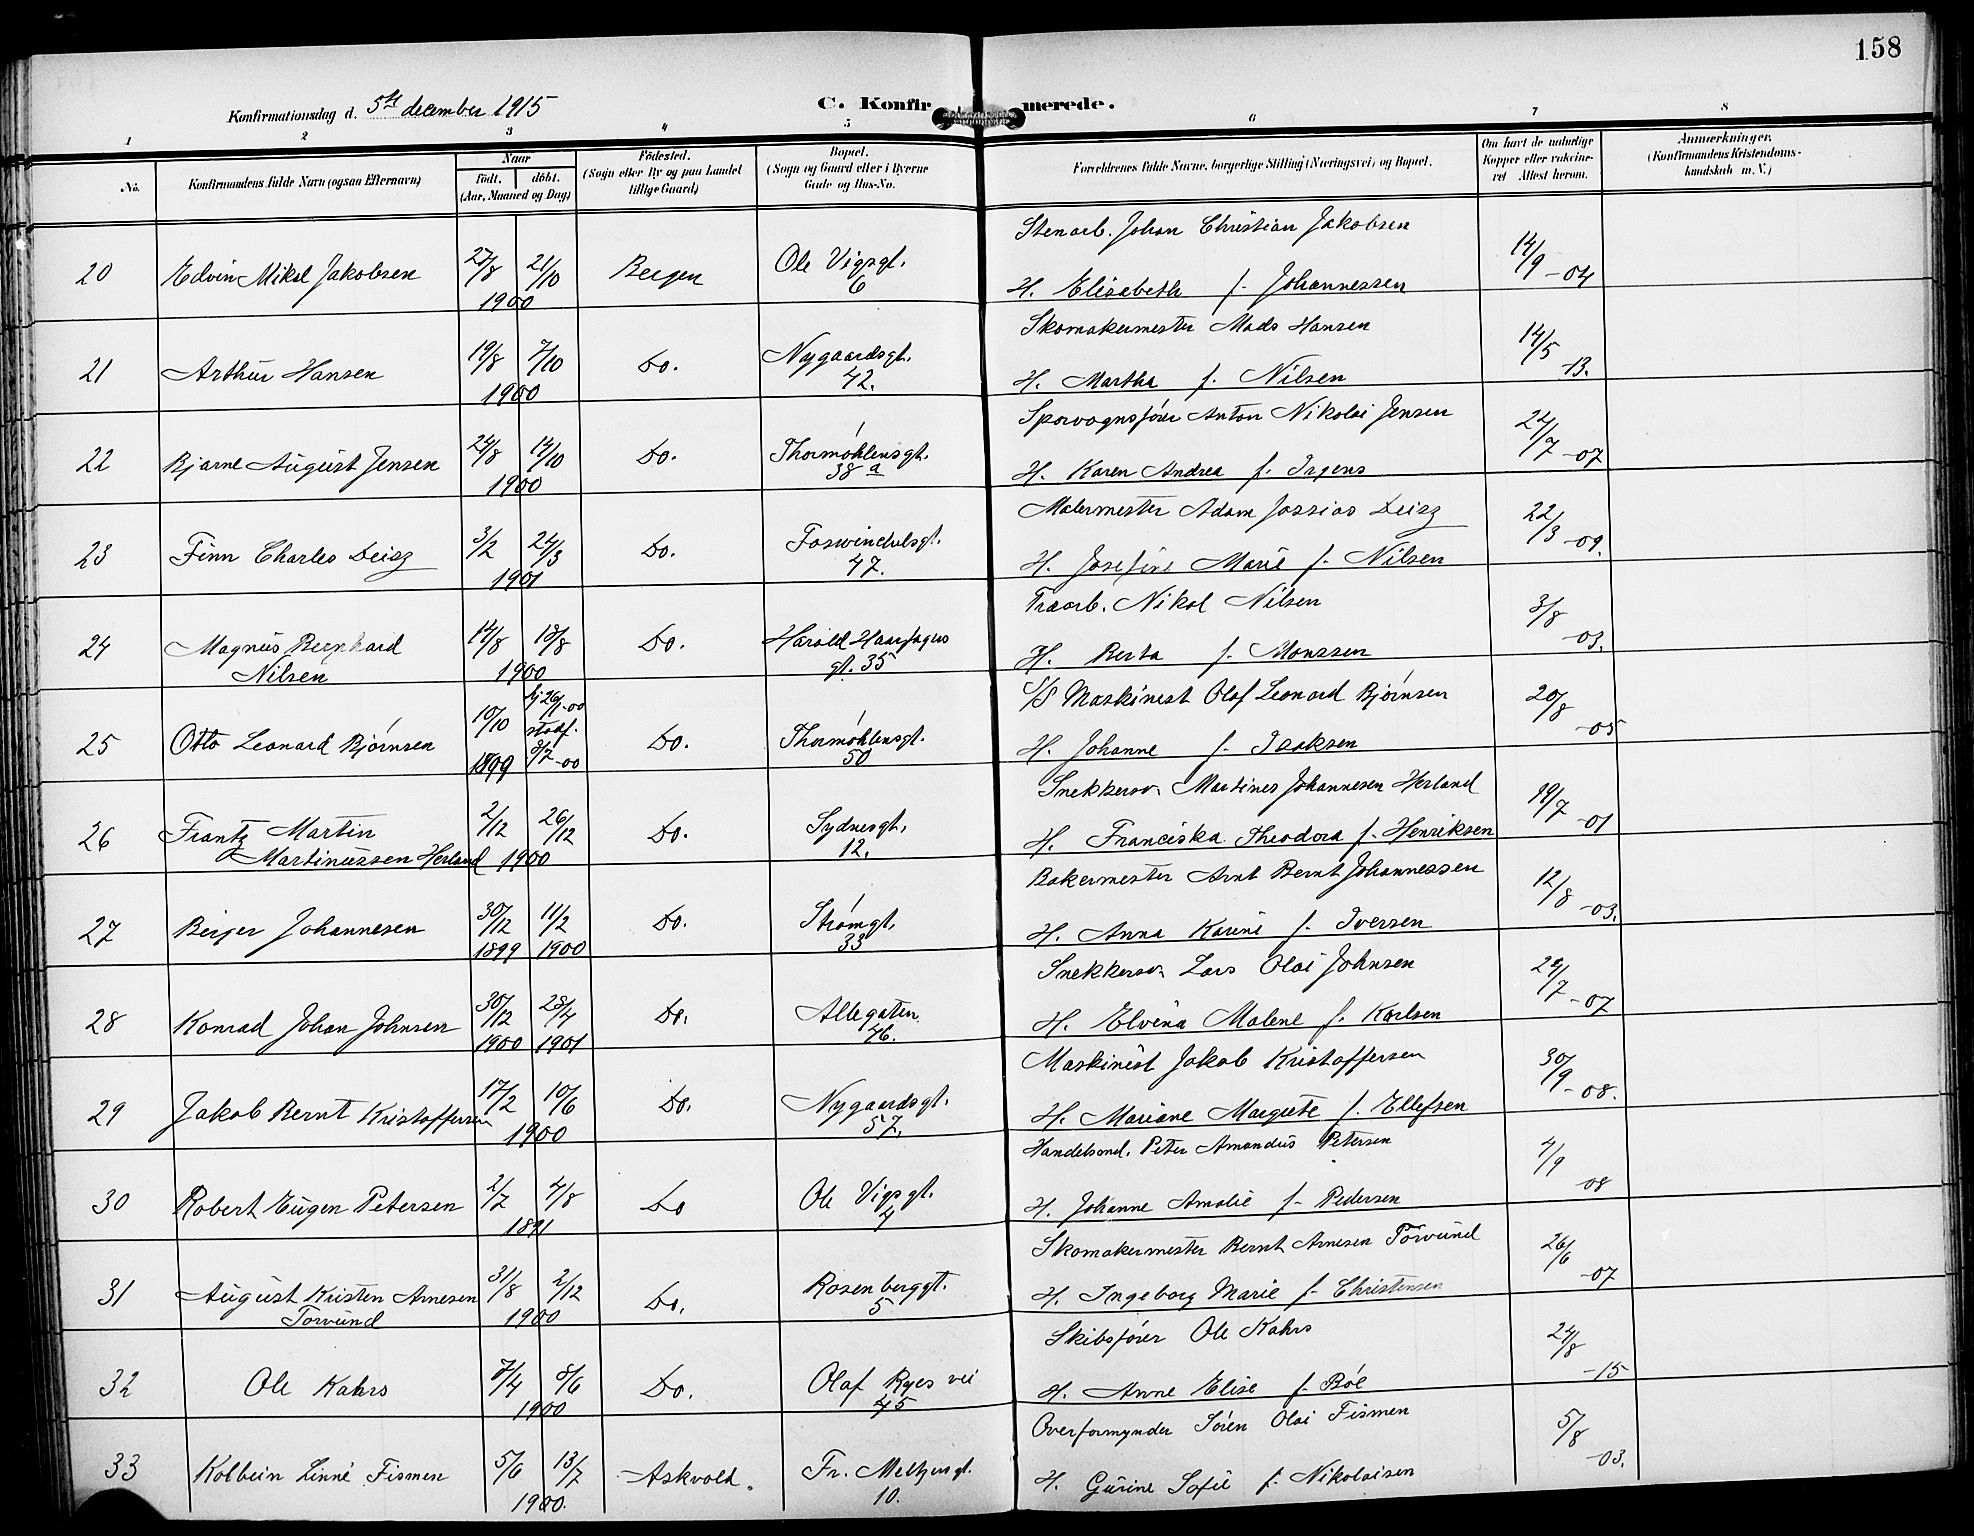 158
Konfirmationsdag d. 5te december 1915
C. Konfirmerede.
1 2 3 4 5 6 7 8
No.
Konfirmandens fulde Navn (ogsaa Efternavn)
Naar
født. døbt.
(Aar, Maaned og Dag)
Fødested.
(Sogn eller By og paa Landet
tillige Gaard)
Bopæl.
(Sogn og Gaard eller i Byerne
Gade og Hus-No.
Forældrenes fulde Navne, borgerlige Stilling (Næringsvei) og Bopæl.
Om havt de naturlige
Kopper eller vakcine-
ret Attest herom.
Anmærkninger.
(Konfirmandens Kristendoms-
kundskab m. V.)
Stenarb. Johan Christian Jakobsen
20 Edvin Mikal Jakobsen 27/8 21/10 1900 Bergen Ole Vigsgt. 6 14/9 -04
H. Elisabeth f. Johannessen
Skomakermester Mads Hansen
21 Arthur Hansen 19/8 7/10 1900 Do. Nygaardsgt. 42. 14/5 -13.
H. Martha f. Nilsen
Sporvognsfører Anton Nikolai Jensen
22 Bjarne August Jensen 24/8 14/10 1900 Do. Thormøhlensgt. 38 a 24/7 -07
H. Karen Andrea f. Irgens
Malermester Adam Jossias Deisz
23 Finn Charles Deisz 3/2 24/3 1901 Do. Foswinckelsgt. 47. 22/3 -09.
H. Josefine Marie f. Nilsen
Traarb. Nikol Nilsen
24 Magnus Bernhard 14/8 18/8 1900 Do. Harald Haarfagus gt. 35 3/8 -03.
Nilsen
H. Berta f. Monssen
S/S Maskinest Olaf Leonard Bjørnsen
25 Otto Leonard Bjørnsen 10/10 1899 hj 26/1-00 stadf. 8/7 -00 Do. Thormøhlensgt. 50 20/8 -05
H. Johanne f. Isaksen
Snekkersv. Martines Johannesen Herland
26 Frantz Martin 2/12 26/12 1900 Do. Sydnesgt. 12. 19/7 -01
Martinussen Herland
H. Franciska Theodora f. Henriksen
Bakermester Arnt Bernt Johannessen
27 Birger Johannesen 30/12 1899 11/2 1900 Do. Strømgt. 33 12/8 -03.
H. Anna Karine f. Iversen
Snekkersv. Lars Olai Johnsen
28 Konrad Johan Johnsen 30/12 1900 28/4 1901 Do. Allegaten. 46. 22/7 -07
H. Elvina Malene f. Karlsen
Maskinist Jakob Kristoffersen
29 Jakob Bernt Kristoffersen 17/2 10/6 1900 Do. Nygaardsgt. 57. 30/9 -08.
H. Mariane Margrete f. Ellefsen
Handelsmd. Peter Amandus Petersen
30 Robert Eugen Petersen 2/7 4/8 1891 Do Ole Vigsgt. 4 4/9 08
H. Johanne Amalie f. Pedersen
Skomakermester Bernt Arnesen Torvund
31 August Kristen Arnesen 31/8 2/12 1900 Do. Rosenberggt. 5 26/6 -07
Torvund
H. Ingeborg Marie f. Christensen
Skibsfører Ole Kahrs
32 Ole Kahrs 7/4 8/6 1900 Do. Olaf Ryes vei 45 24/8 -15
H. Anne Elise f. Bøe
Overformynder Søren Olai Fismen
33 Kolbein Linné Fismen 5/6 13/7 1900. Askvold. Fr. Meltzersgt. 10. 5/8 -03.
H. Gurine Sofie f. Nikolaisen